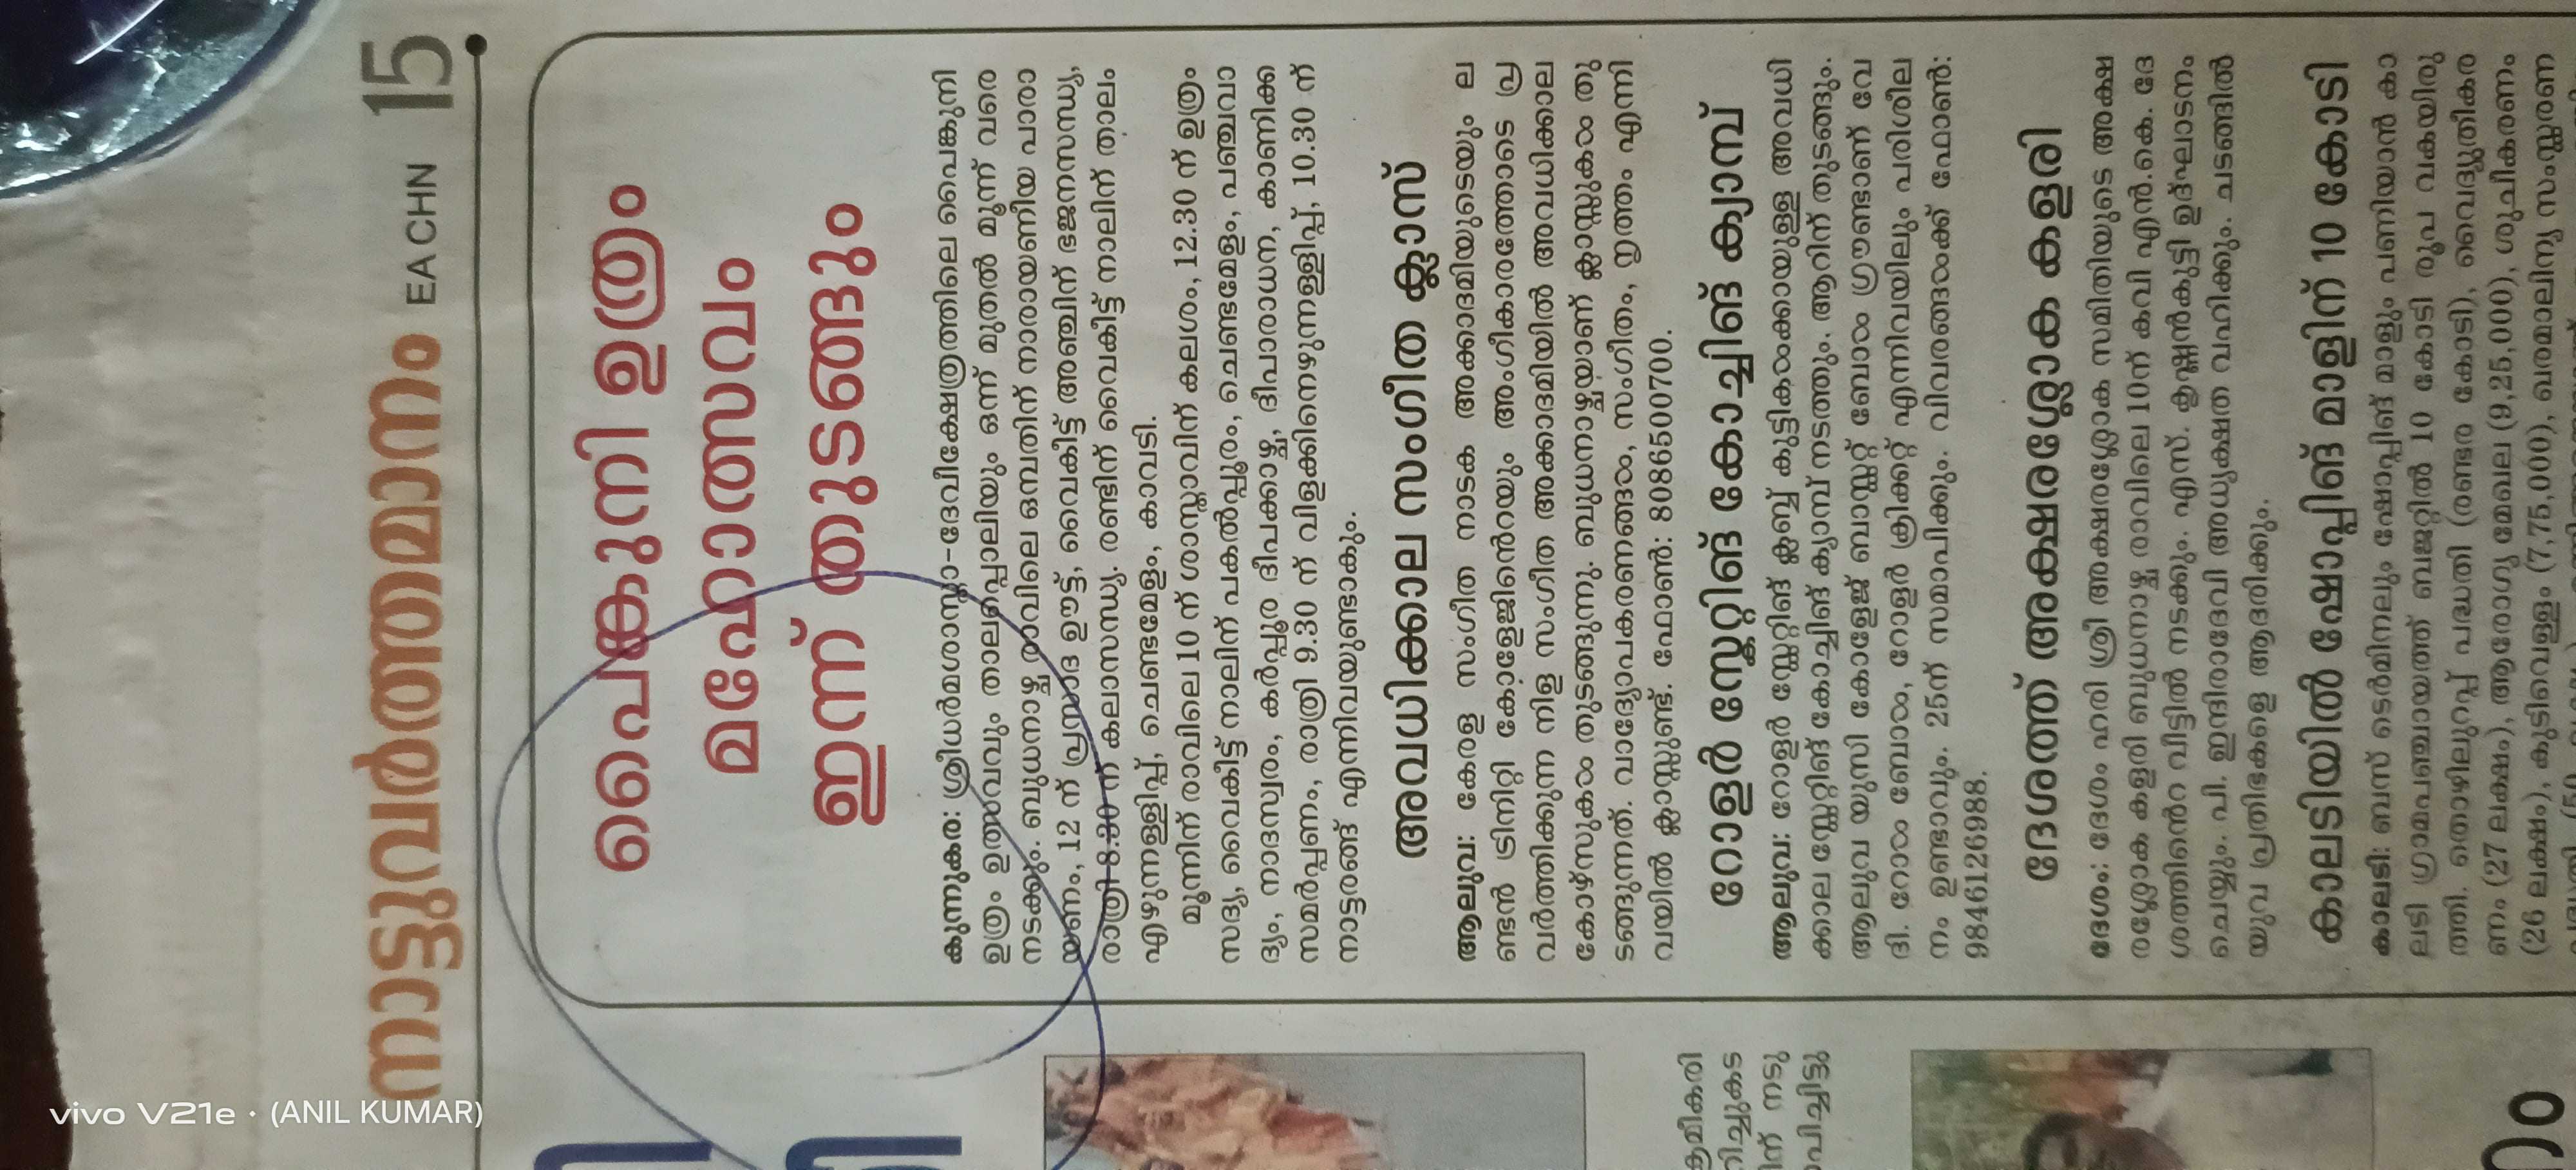 നാട്ടുവർത്തമാനം EA CHN 15
പൈങ്കുനി ഉത്രം
മഹോത്സവം
ഇന്ന് തുടങ്ങും
കുന്നുകര: ശ്രീധർമശാസ്താ-ദേവീക്ഷേത്രത്തിലെ പൈങ്കുനി
ഉത്രം ഉത്സവവും താലപ്പൊലിയും ഒന്ന് മുതൽ മൂന്ന് വരെ
നടക്കും. ബുധനാഴ്ച രാവിലെ ഒമ്പതിന് നാരായണീയ പാരാ
യണം, 12 ന് പ്രസാദ ഊട്ട്, വൈകിട്ട് അഞ്ചിന് ഭജനസന്ധ്യ,
രാത്രി 8.30 ന് കലാസന്ധ്യ. രണ്ടിന് വൈകിട്ട് നാലിന് താലം
എഴുന്നള്ളിപ്പ്, ചെണ്ടമേളം, കാവടി.
മൂന്നിന് രാവിലെ 10 ന് ശാസ്താവിന് കലശം, 12.30 ന് ഉത്രം
സദ്യ, വൈകിട്ട് നാലിന് പകൽപ്പൂരം, ചെണ്ടമേളം, പഞ്ചവാ
ദ്യം, നാദസ്വരം, കർപ്പൂര ദീപക്കാഴ്ച, ദീപാരാധന, കാണിക്ക
സമർപ്പണം, രാത്രി 9.30 ന് വിളക്കിനെഴുന്നള്ളിപ്പ്, 10.30 ന്
നാട്ടരങ്ങ് എന്നിവയുണ്ടാകും.
അവധിക്കാല സംഗീത ക്ലാസ്
ആലുവ: കേരള സംഗീത നാടക അക്കാദമിയുടെയും ല
ണ്ടൻ ട്രിനിറ്റി കോളേജിന്റെയും അംഗീകാരത്തോടെ പ്ര
വർത്തിക്കുന്ന നിള സംഗീത അക്കാദമിയിൽ അവധിക്കാല
കോഴ്സുകൾ തുടങ്ങുന്നു. ബുധനാഴ്ചയാണ് ക്ലാസ്സുകൾ തു
ടങ്ങുന്നത്. വാദ്യോപകരണങ്ങൾ, സംഗീതം, നൃത്തം എന്നി
വയിൽ ക്ലാസ്സുണ്ട്. ഫോൺ: 8086500700.
റോളർ സ്കേറ്റിങ് കോച്ചിങ് ക്യാമ്പ്
ആലുവ: റോളർ സ്കേറ്റിങ് ക്ലബ്ബ് കുട്ടികൾക്കായുള്ള അവധി
ക്കാല സ്കേറ്റിങ് കോച്ചിങ് ക്യാമ്പ് നടത്തും. ആറിന് തുടങ്ങും.
ആലുവ യുസി കോളേജ് ബാസ്കറ്റ് ബോൾ ഗ്രൗണ്ടാണ് വേ
ദി. റോൾ ബോൾ, റോളർ ക്രിക്കറ്റ് എന്നിവയിലും പരിശീല
നം ഉണ്ടാവും. 25ന് സമാപിക്കും. വിവരങ്ങൾക്ക് ഫോൺ:
9846126988.
ദേശത്ത് അക്ഷരശ്ലോക കളരി
ദേശം: ദേശം ഹരി ശ്രീ അക്ഷരശ്ലോക സമിതിയുടെ അക്ഷ
രശ്ലോക കളരി ബുധനാഴ്ച രാവിലെ 10ന് കവി എൻ.കെ. ദേ
ശത്തിന്റെ വീട്ടിൽ നടക്കും. എസ്. കൃഷ്ണൻകുട്ടി ഉദ്ഘാടനം
ചെയ്യും. വി. ഇന്ദിരാദേവി അധ്യക്ഷത വഹിക്കും. ചടങ്ങിൽ
യുവ പ്രതിഭകളെ ആദരിക്കും.
കാലടിയിൽ ഷോപ്പിങ് മാളിന് 10 കോടി
കാലടി: ബസ് ടെർമിനലും ഷോപ്പിങ് മാളും പണിയാൻ കാ
ലടി ഗ്രാമപഞ്ചായത്ത് ബജറ്റിൽ 10 കോടി രൂപ വകയിരു
ത്തി. തൊഴിലുറപ്പ് പദ്ധതി (രണ്ടര കോടി), വൈദ്യുതികര
ണം (27 ലക്ഷം), ആരോഗ്യ മേഖല (9,25,000), ശുചികരണം
(26 ലക്ഷം), കുടിവെള്ളം (7,75,000), ഖരമാലിന്യ സംസ്കരണ
vivo V21e · (ANIL KUMAR)